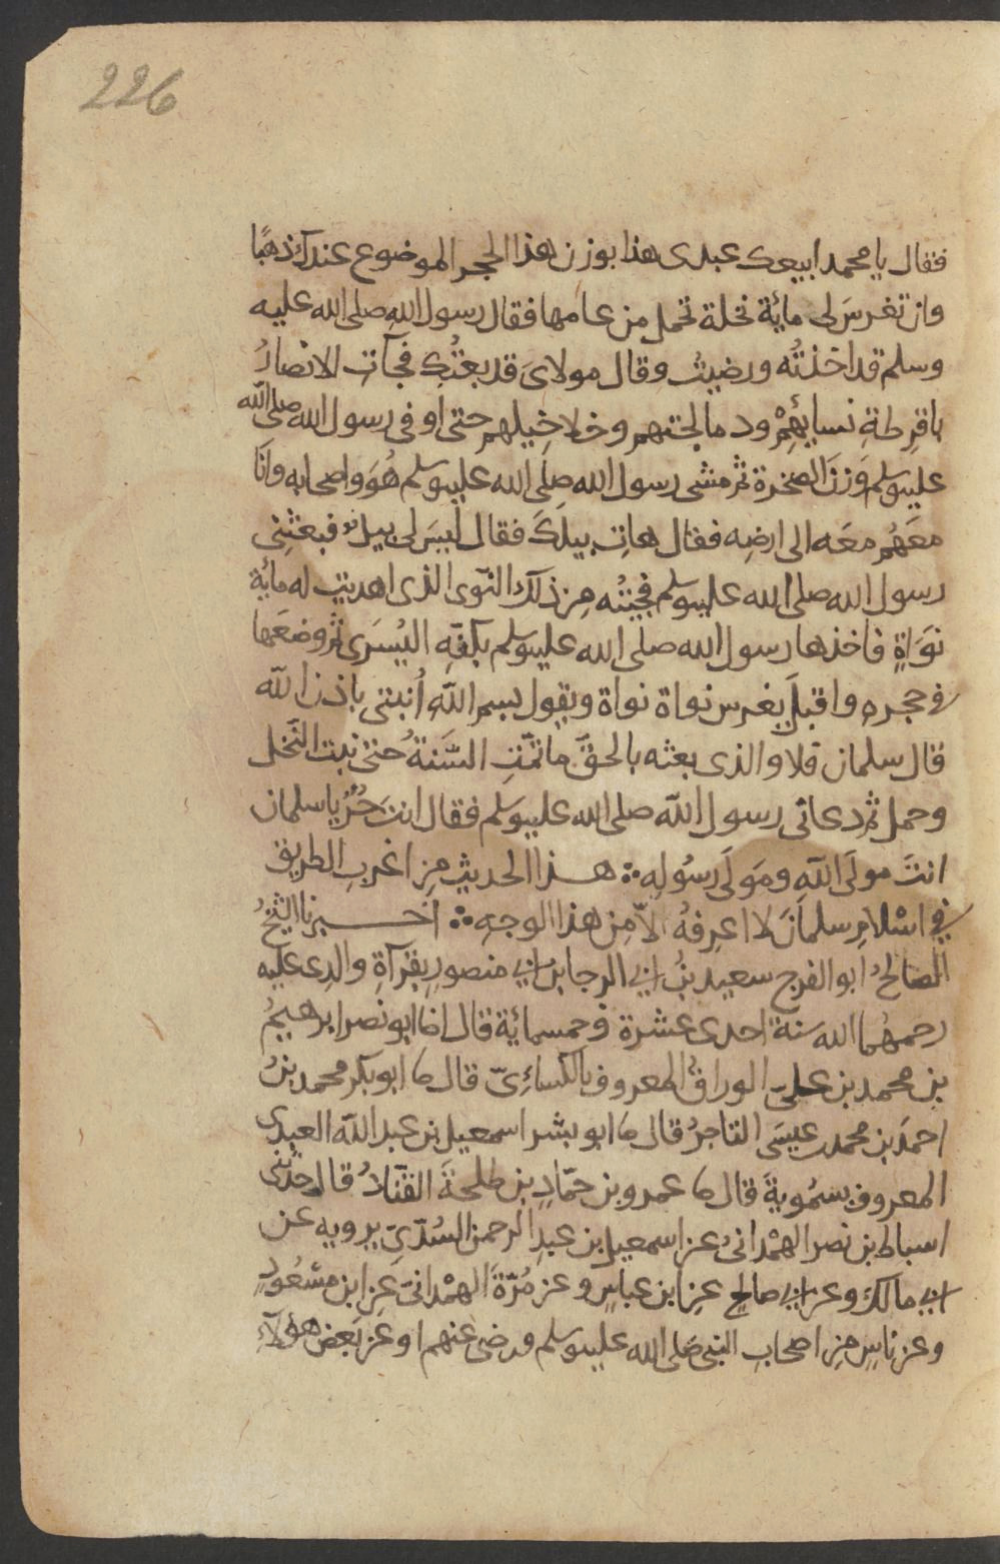 226
فقال يا محمد ابيعك عبدى هذا بوزن هذا الحجر الموضوع عندك ذهبًا
وان تغرسَ لى مائة نخلة تحمل من عامها فقال رسول الله صلى الله عليه
وسلم قد اخذتُه ورضيتُ وقال مولاىَ قد بعتُك فجآت الانصارُ
باقرِطةِ نسايهِمْ ودمالجتهم وخلاخيلهم حتى اوفى رسول الله صلى الله
عليه وسلم وَزنَ الصخرة ثم مشى رسول الله صلى الله عليه وسلم هُوَ واصحابه وانَا
معَهُم معَه الى ارضِه فقال هاتِ بيلكَ فقال ليسَ لى بيل فبعثنِى
رسول الله صلى الله عليه وسلم فجيتُه مِن ذلك النوى الذى اهديت له مائة
نوَاةٍ فاخذها رسول الله صلى الله عليه وسلم بكفّهِ اليُسرَى ثم وضعَها
فى حجره واقبلَ يغرس نواة نواة ويقول بسم اللّهِ اُنبتى باذن اللّه
قال سلمان فلا والذى بعثه بالحقّ ما تمّتِ السَّنةُ حتى نبت النّخل
وحمل ثم دعانى رسول اللّه صلى الله عليه وسلم فقال انتَ حُرٌّ يا سلمان
انتَ مولَى اللّهِ ومَولَى رسُولهِ ؞ هذا الحديث مِن اغربِ الطريق
فى اسْلامِ سلمانَ لا اعرِفهُ الاّ مِن هذا الوجهِ ؞ اخبرنا الشيخُ
الصالحُ ابو الفرج سعيد بنُ ابى الرجا بن ابى منصورٍ بقرآةِ والدِى عليه
رحمهُما الله سنة احدى عشرة وخمسمائة قال انا ابو نصر ابرهيمُ
بن محمد بن علىّ الوراقُ المعروف بالكسائِىّ قال نا ابو بكر محمد بنُ
احمدَ بن محمد بن عيسَى التاجرُ قال نا ابو بشر اسمعيل بن عبد اللّه العبدى
المعروف بسمُّويةَ قال نا عمرو بن حمّادٍ بن طلحةَ القنّادُ قال حدثنى
اسباط بن نصر الهمْدانىُّ عن اسمعيل بن عبدِ الرحمن السُدّىّ يرويه عن
ابى مالك وعن ابى صالحٍ عنِ ابن عباسٍ وعن مُرّةَ الهمْدانىّ عنِ ابن مسْعُودٍ
وعن ناسٍ مِن اصحابِ النبى صَلى الله عليه وسلم ورضى عنهم او عن بعض هؤلآءِ